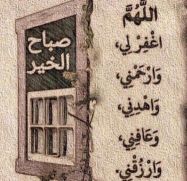 اللَّهُمَّ
اغْفِرْ لِي،
وَارْحَمْنِي،
وَاهْدِنِي،
وَعَافِنِي،
وَارْزُقْنِي
صباح
الخير